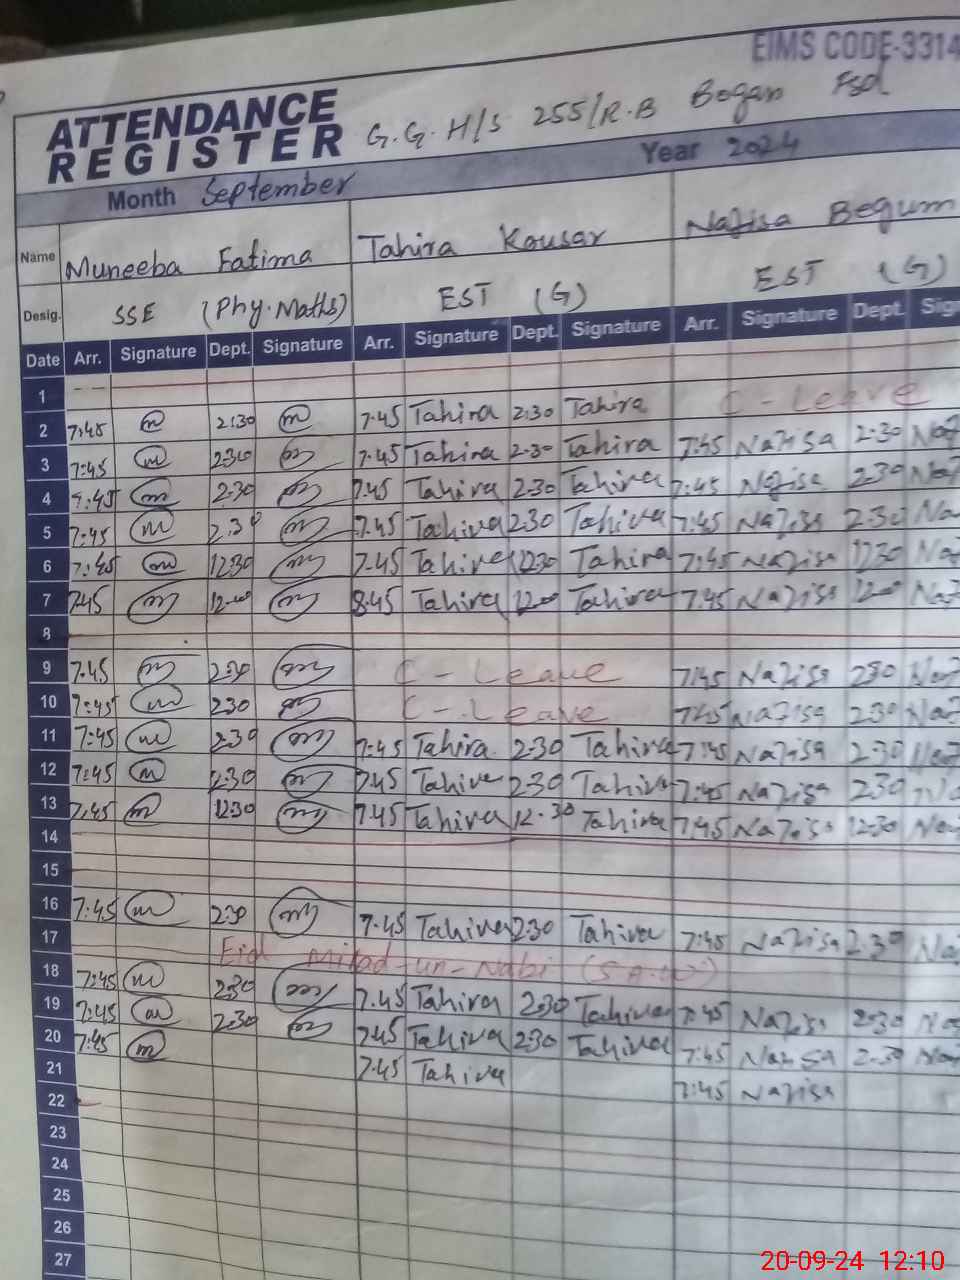 EIMS CODE-3314
ATTENDANCE REGISTER G.G.H/S 255/R.B Bogan Fsd
Month September Year 2024
Name Muneeba Fatima Tahira Kousar Nafisa Begum
Desig. SSE (Phy.Maths) EST (G) EST (G)
Date Arr. Signature Dept. Signature Arr. Signature Dept. Signature Arr. Signature Dept. Sig
1
2 7:45 m 2:30 m 7.45 Tahira 2:30 Tahira C-Leave
3 7:45 m 2:30 m 7.45 Tahira 2.30 Tahira 7:45 Nazisa 2.30 Naz
4 7:45 m 2.30 m 7.45 Tahira 2.30 Tahira 7:45 Nazisa 2.30 Naz
5 7:45 m 2.30 m 7.45 Tahira 2.30 Tahira 7:45 Nazisa 2.30 Na
6 7:45 m 12:30 m 7.45 Tahira 12:30 Tahira 7:45 Nazisa 12:30 Na
7 7:45 m 12.00 m 8:45 Tahira 12.00 Tahira 7:45 Nazisa 12.00 Naz
8
9 7.45 m 2:30 m C-Leave 7:45 Nazisa 2:30 Naz
10 7:45 m 2:30 m C-Leave 7:45 Nazisa 2.30 Naz
11 7:45 m 2:30 m 7:45 Tahira 2.30 Tahira 7:45 Nazisa 2.30 Naz
12 7:45 m 2:30 m 7:45 Tahira 2:30 Tahira 7:45 Nazisa 2:30 Na
13 7:45 m 12:30 m 7.45 Tahira 12.30 Tahira 7:45 Nazisa 12:30 Na
14
15
16 7:45 m 2:30 m 7.45 Tahira 2:30 Tahira 7:45 Nazisa 2.30 Na
17 Eid Milad-un-Nabi (S.A.W)
18 7:45 m 2:30 m 7.45 Tahira 2:30 Tahira 7:45 Nazisa 2:30 Na
19 7:45 m 2:30 m 7:45 Tahira 2:30 Tahira 7:45 Nazisa 2.30 Na
20 7:45 m 7:45 Tahira 7:45 Nazisa
21
22
23
24
25
26
27
20-09-24 12:10